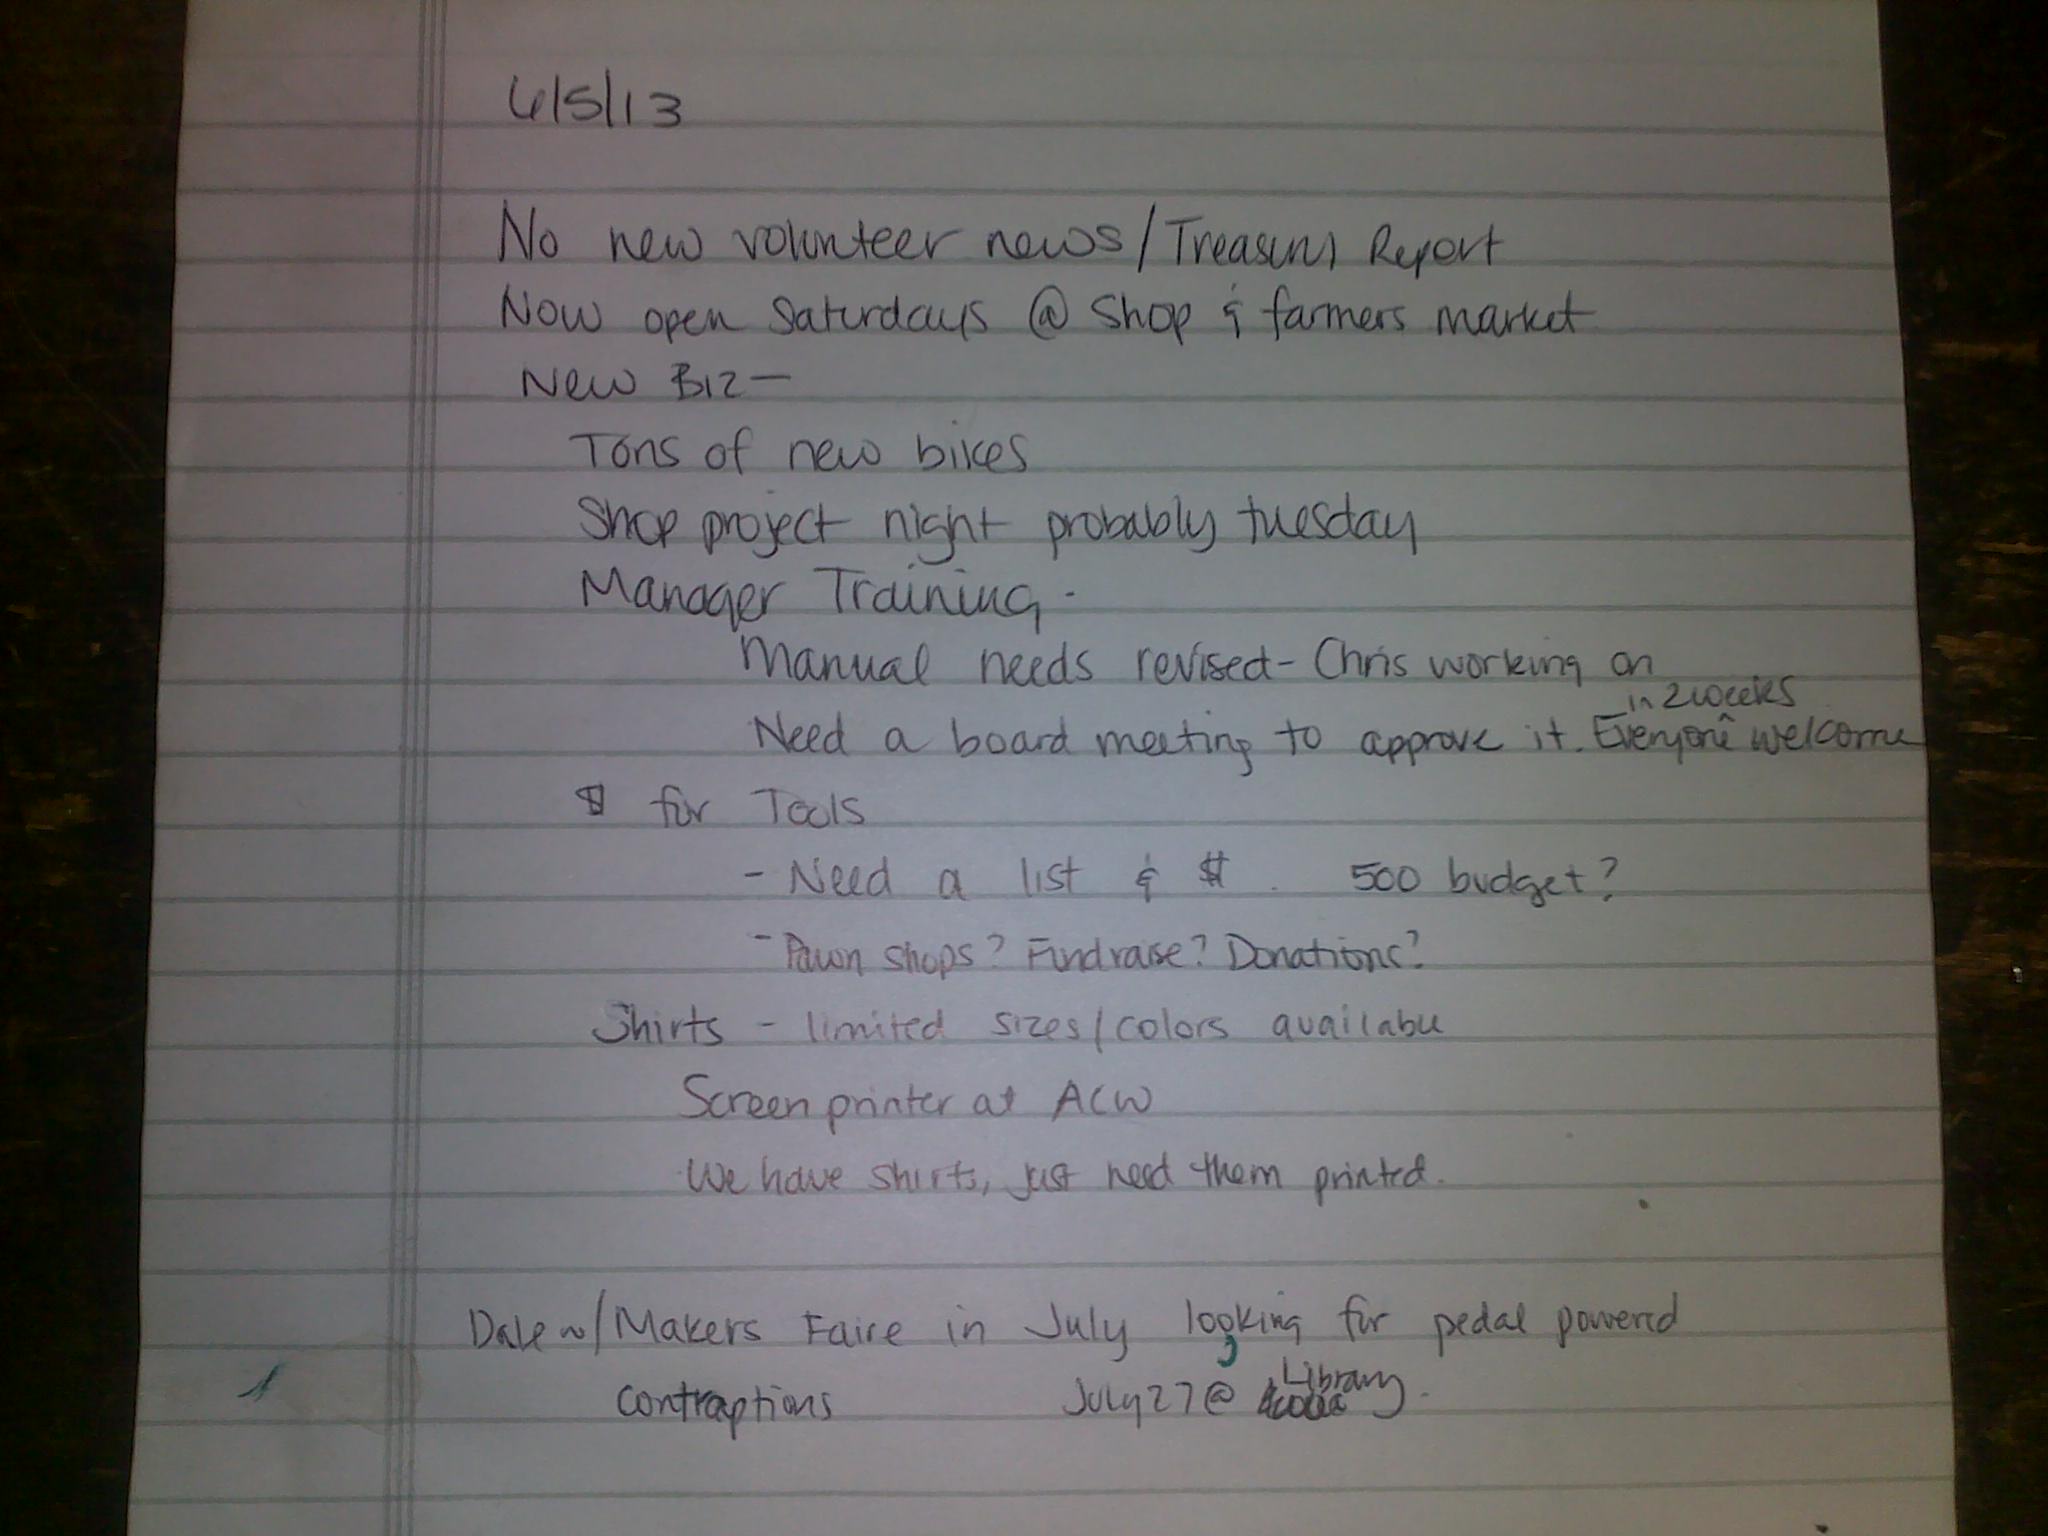 6/5/13
No new volunteer news/Treasury Report
Now open Saturdays @ Shop & farmers market
New Biz—
Tons of new bikes
Shop project night probably tuesday
Manager Training -
Manual needs revised - Chris working on
in 2 weeks
Need a board meeting to approve it. Everyone ^ welcome
$ for Tools
- Need a list & $. 500 budget?
- Pawn shops? Fundraise? Donations?
Shirts - limited sizes/colors available
Screen printer at ACW
We have shirts, just need them printed.
Dale w/Makers Faire in July looking for pedal powered
contraptions July 27 @ Library.